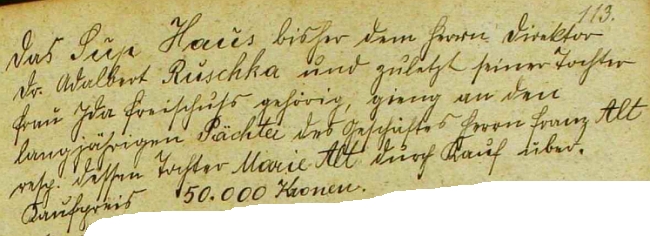 113.
Das Süp Haus bisher dem Herrn Direktor
Dr. Adalbert Ruschka und zuletzt seiner Tochter
Frau Ida Freischuls gehörig, gieng an den
langjährigen Pächter des Geschäftes Herrn Franz Alt
resp. dessen Tochter Marie Alt durch Kauf über.
Kaufpreis 50.000 Kronen.